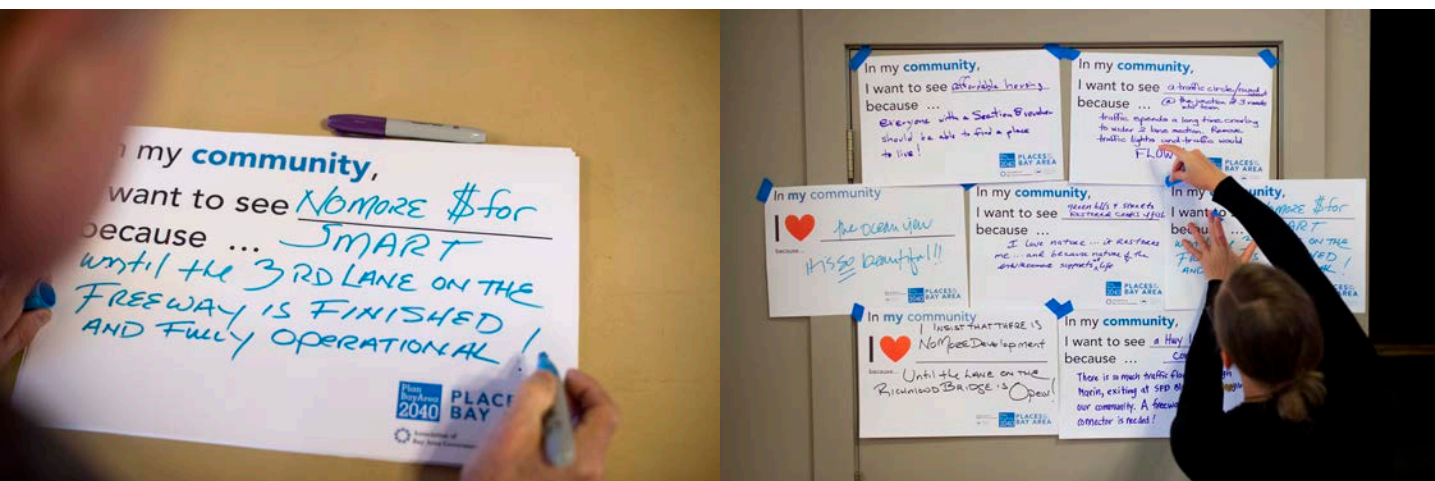 my community,
want to see NO MORE $ for
because ... SMART
until the 3RD LANE ON THE
FREEWAY IS FINISHED
AND FULLY OPERATIONAL !
Plan
BayArea
2040
PLACE
BAY
Association of
Bay Area Governments
In my community,
I want to see affordable housing
because ...
Everyone with a Section 8 voucher
should be able to find a place
to live!
PLACES
BAY AREA
In my community,
I want to see a traffic circle/
because ... @ the junction of 3 roads
traffic spends a long time crawling
to wider 2 lane section. Remove
traffic lights and traffic would
FLOW
PLACES
BAY AREA
In my community
I ♥ the ocean view
because...
it is so beautiful!!
2040
PLACES
BAY AREA
In my community,
I want to see green hills + streets
because ...
I love nature ... it RESTORES
me ... and because nature & the
environment supports life
PLACES
BAY AREA
In my community,
I want to MORE $ for
ART
ON THE
AND
In my community
I ♥ I INSIST THAT THERE IS
No More Development
because... Until the LANE ON THE
RICHMOND BRIDGE IS Open!
2040
PLACES
BAY AREA
In my community,
I want to see a Hwy
because ...
There is so much traffic
Marin, exiting at SFD
our community. A
connector is needed!